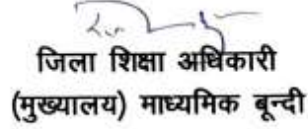 जिला शिक्षा अधिकारी
(मुख्यालय) माध्यमिक बून्दी